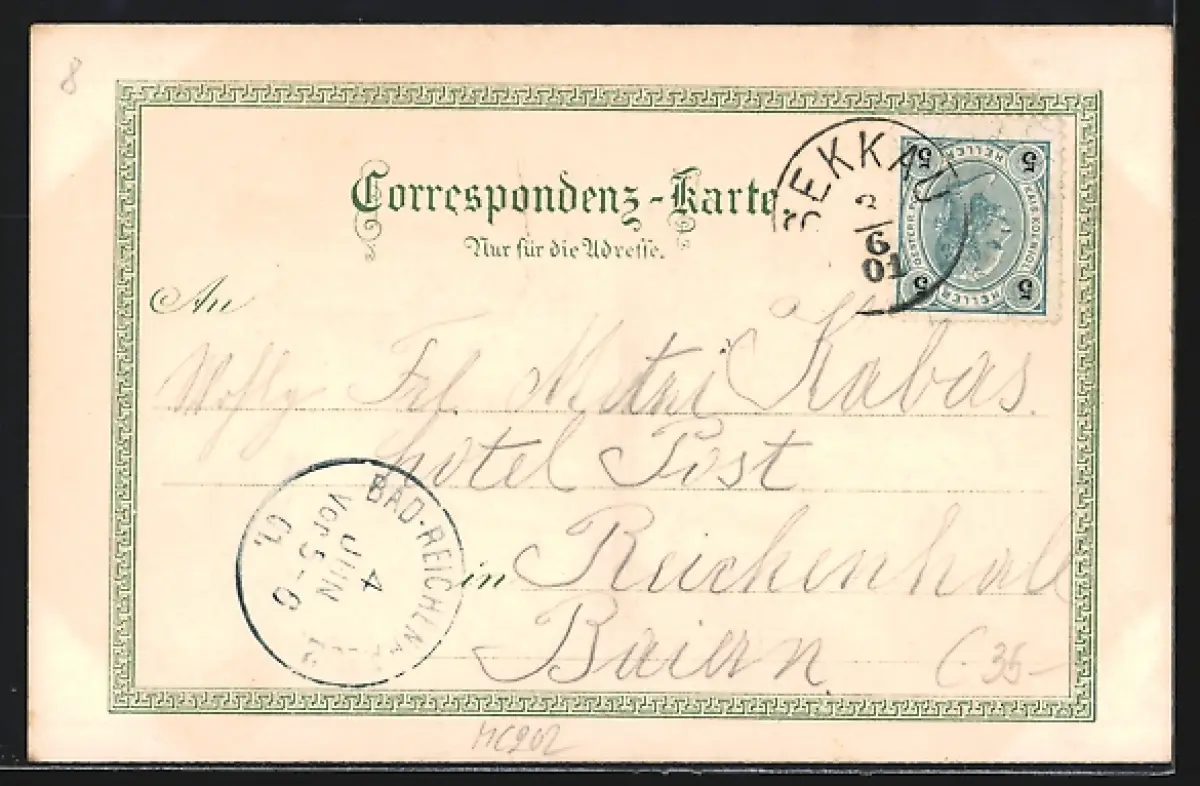 8
Correspondenz-Karte.
Nur für die Adresse.
SEKKAU
2/6
01
5 HELLER 5
5 HELLER 5
An
Frl. Mitzi Kabas.
Hotel Post
in Reichenhall
Baiern.
BAD-REICHENHALL
4
JUN
VOR.5-6
01.
C 35-
MC202